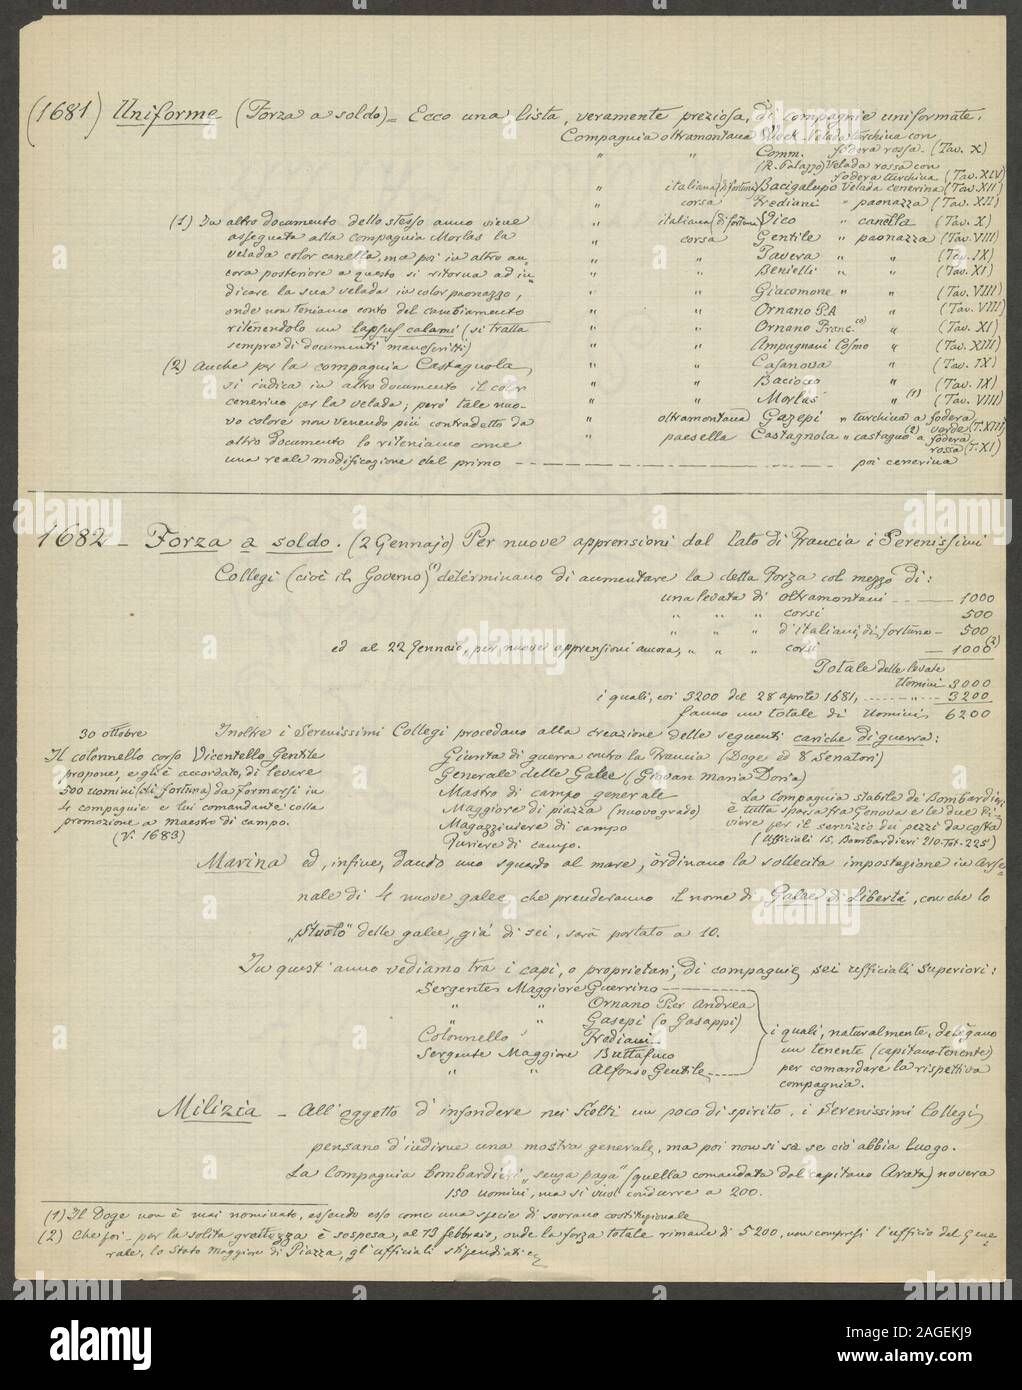 (1681) Uniforme (Forza a soldo) = Ecco una lista, veramente preziosa, di compagnie uniformate.
Compagnia oltramontana Velada turchina con
fodera rossa - (Tav. X)
" " Comm. (R. Palazzo) Velada rossa con
fodera turchina (Tav. XIV)
" italiana (di fortuna) Bacigalupo Velada cenerina (Tav. XII)
" corsa Frediani " paonazza (Tav. XII)
" italiana (di fortuna) Vico " canella (Tav. X)
" corsa Gentile " paonazza (Tav. VIII)
" " Tavera " " (Tav. IX)
" " Benielli " " (Tav. XI)
" " Giacomone " " (Tav. VIII)
" " Ornano P.A " (Tav. VIII)
" " Ornano Franc.co) " (Tav. XI)
" " Ampugnani Cosmo " (Tav. XIII)
" " Casanova " (Tav. IX)
" " Baciocco " (Tav. IX)
" " Morlas " (1) (Tav. VIII)
" oltramontana Gazepi " turchina a fodera
verde (T. XIII)
" paesella Castagnola " castagno (2) a fodera
rossa (T. XI)
poi cenerina
(1) In altro documento dello stesso anno viene
assegnata alla compagnia Morlas la
velada color canella, ma poi in altro an,
cora posteriore a questo si ritorna ad in,
dicare la sua velada in color paonazzo,
onde non teniamo conto del cambiamento
ritenendolo un lapsus calami (si tratta
sempre di documenti manoscritti)
(2) Anche per la compagnia Castagnola,
si indica in altro documento il color
cenerino per la velada; però tale nuo-
vo colore non venendo più contradetto da
altro documento lo riteniamo come
una reale modificazione del primo
1682 - Forza a soldo. (2 Gennajo) Per nuove apprensioni dal lato di Francia i Serenissimi
Collegi (cioè il Governo) (1) determinano di aumentare la detta Forza col mezzo di:
una levata di oltramontani - - 1000
" " " corsi 500
" " " d'italiani, di fortuna - 500
ed al 22 Gennaio, per nuove apprensioni ancora, " " " corsi - 1000 (2)
Totale delle levate
Uomini 3000
i quali, coi 3200 del 28 aprile 1681, " 3200
fanno un totale di Uomini, 6200
Inoltre i Serenissimi Collegi procedano alla creazione delle seguenti cariche di guerra:
Giunta di guerra contro la Francia (Doge ed 8 Senatori)
Generale delle Galee (Giovan Maria Doria)
Mastro di campo generale
Maggiore di piazza (nuovo grado)
Magazziniere di campo
Furiere di campo.
30 ottobre
Il colonnello corso Vicentello Gentile
propone, e gli è accordato, di levare
500 uomini (di fortuna) da formarsi in
4 compagnie e lui comandante colla
promozione a maestro di campo.
(V. 1683)
La Compagnia stabile de' Bombardie,
è tutta sparsa fra Genova e le due Ri,
viere per il servizio dei pezzi da costa
(Ufficiali 15, Bombardieri 210 - Tot. 225)
Marina ed, infine, dando uno sguardo al mare, ordinano la sollecita impostazione in Arse,
nale di 4 nuove galee, che prenderanno il nome di Galee di Libertà, con che lo
"Stuolo" delle galee, già di sei, sarà portato a 10.
In quest'anno vediamo tra i capi, o proprietari, di compagnie, sei ufficiali superiori:
Sergente Maggiore Guerrino
" " Ornano Pier Andrea
" " Gasepi (o Gasappi)
Colonnello Frediani
Sergente Maggiore Buttafuco
" " Alfonso Gentile
i quali, naturalmente, delegano
un tenente (capitano-tenente)
per comandare la rispettiva
compagnia.
Milizia - All'oggetto d'infondere nei Scelti un poco di spirito, i Serenissimi Collegi,
pensano d'indirne una mostra generale, ma poi non si sa se ciò abbia luogo.
La Compagnia Bombardieri "senza paga" (quella comandata dal capitano Arata) novera
150 uomini, ma si vuol condurre a 200.
(1) Il Doge non è mai nominato, essendo esso come una specie di sovrano costituzionale
(2) Che poi - per la solita grettezza è sospesa, al 13 febbraio, onde la forza totale rimane di 5200, non compresi l'ufficio del Gene,
rale, lo Stato Maggiore di Piazza, gli ufficiali stipendiati ec
alamy
Image ID: 2AGEKJ9
www.alamy.com